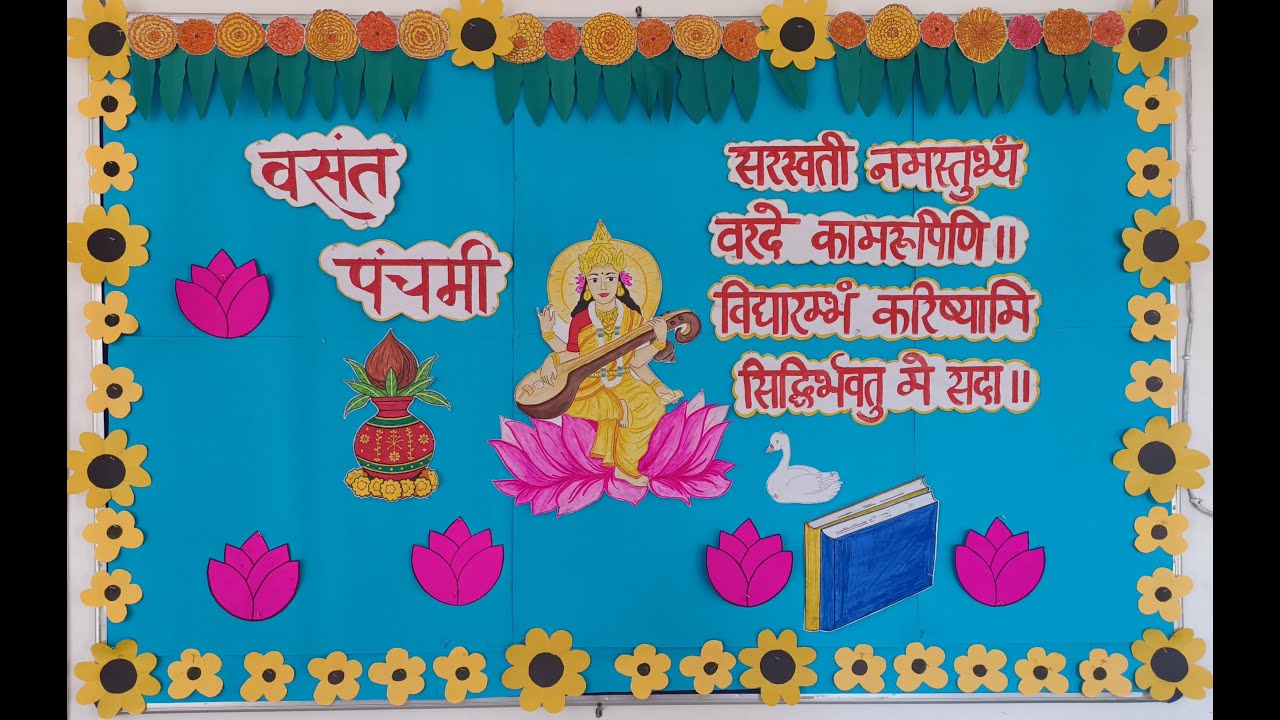 वसंत
पंचमी
सरस्वती नमस्तुभ्यं
वरदे कामरूपिणि॥
विद्यारम्भं करिष्यामि
सिद्धिर्भवतु मे सदा॥